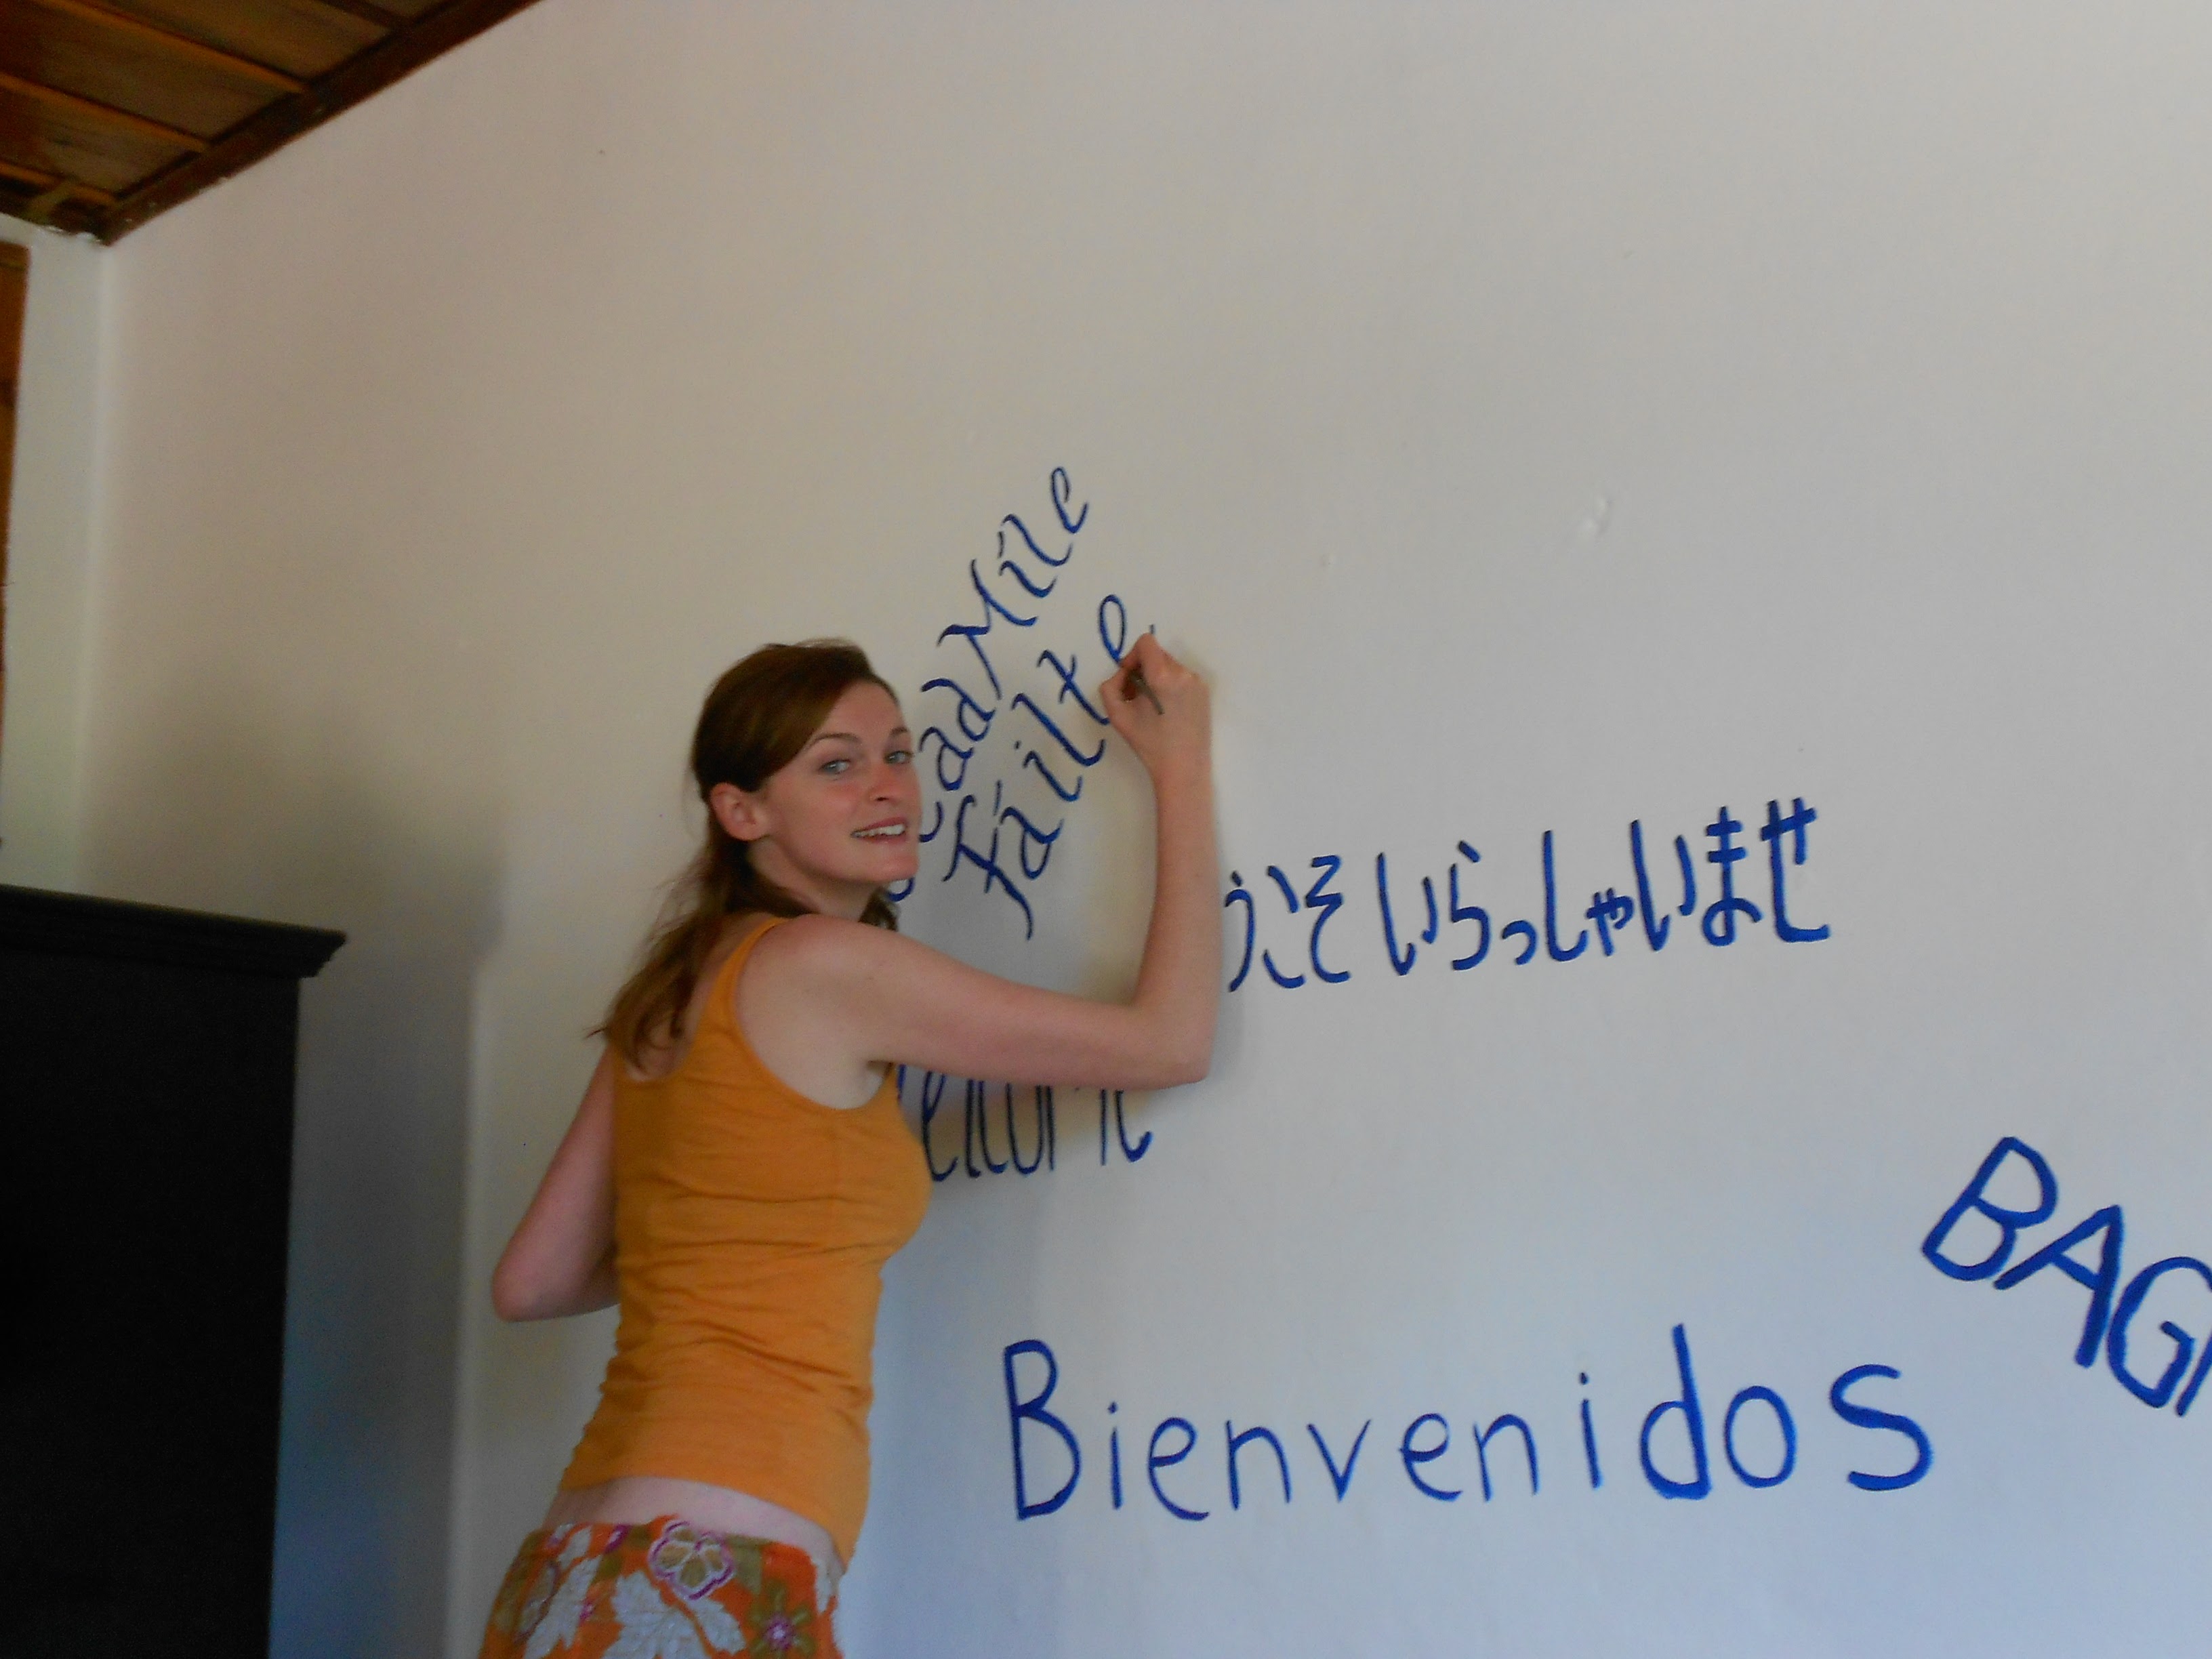 Céad Míle
fáilte
うこそ いらっしゃいませ
elcome
BAG
Bienvenidos